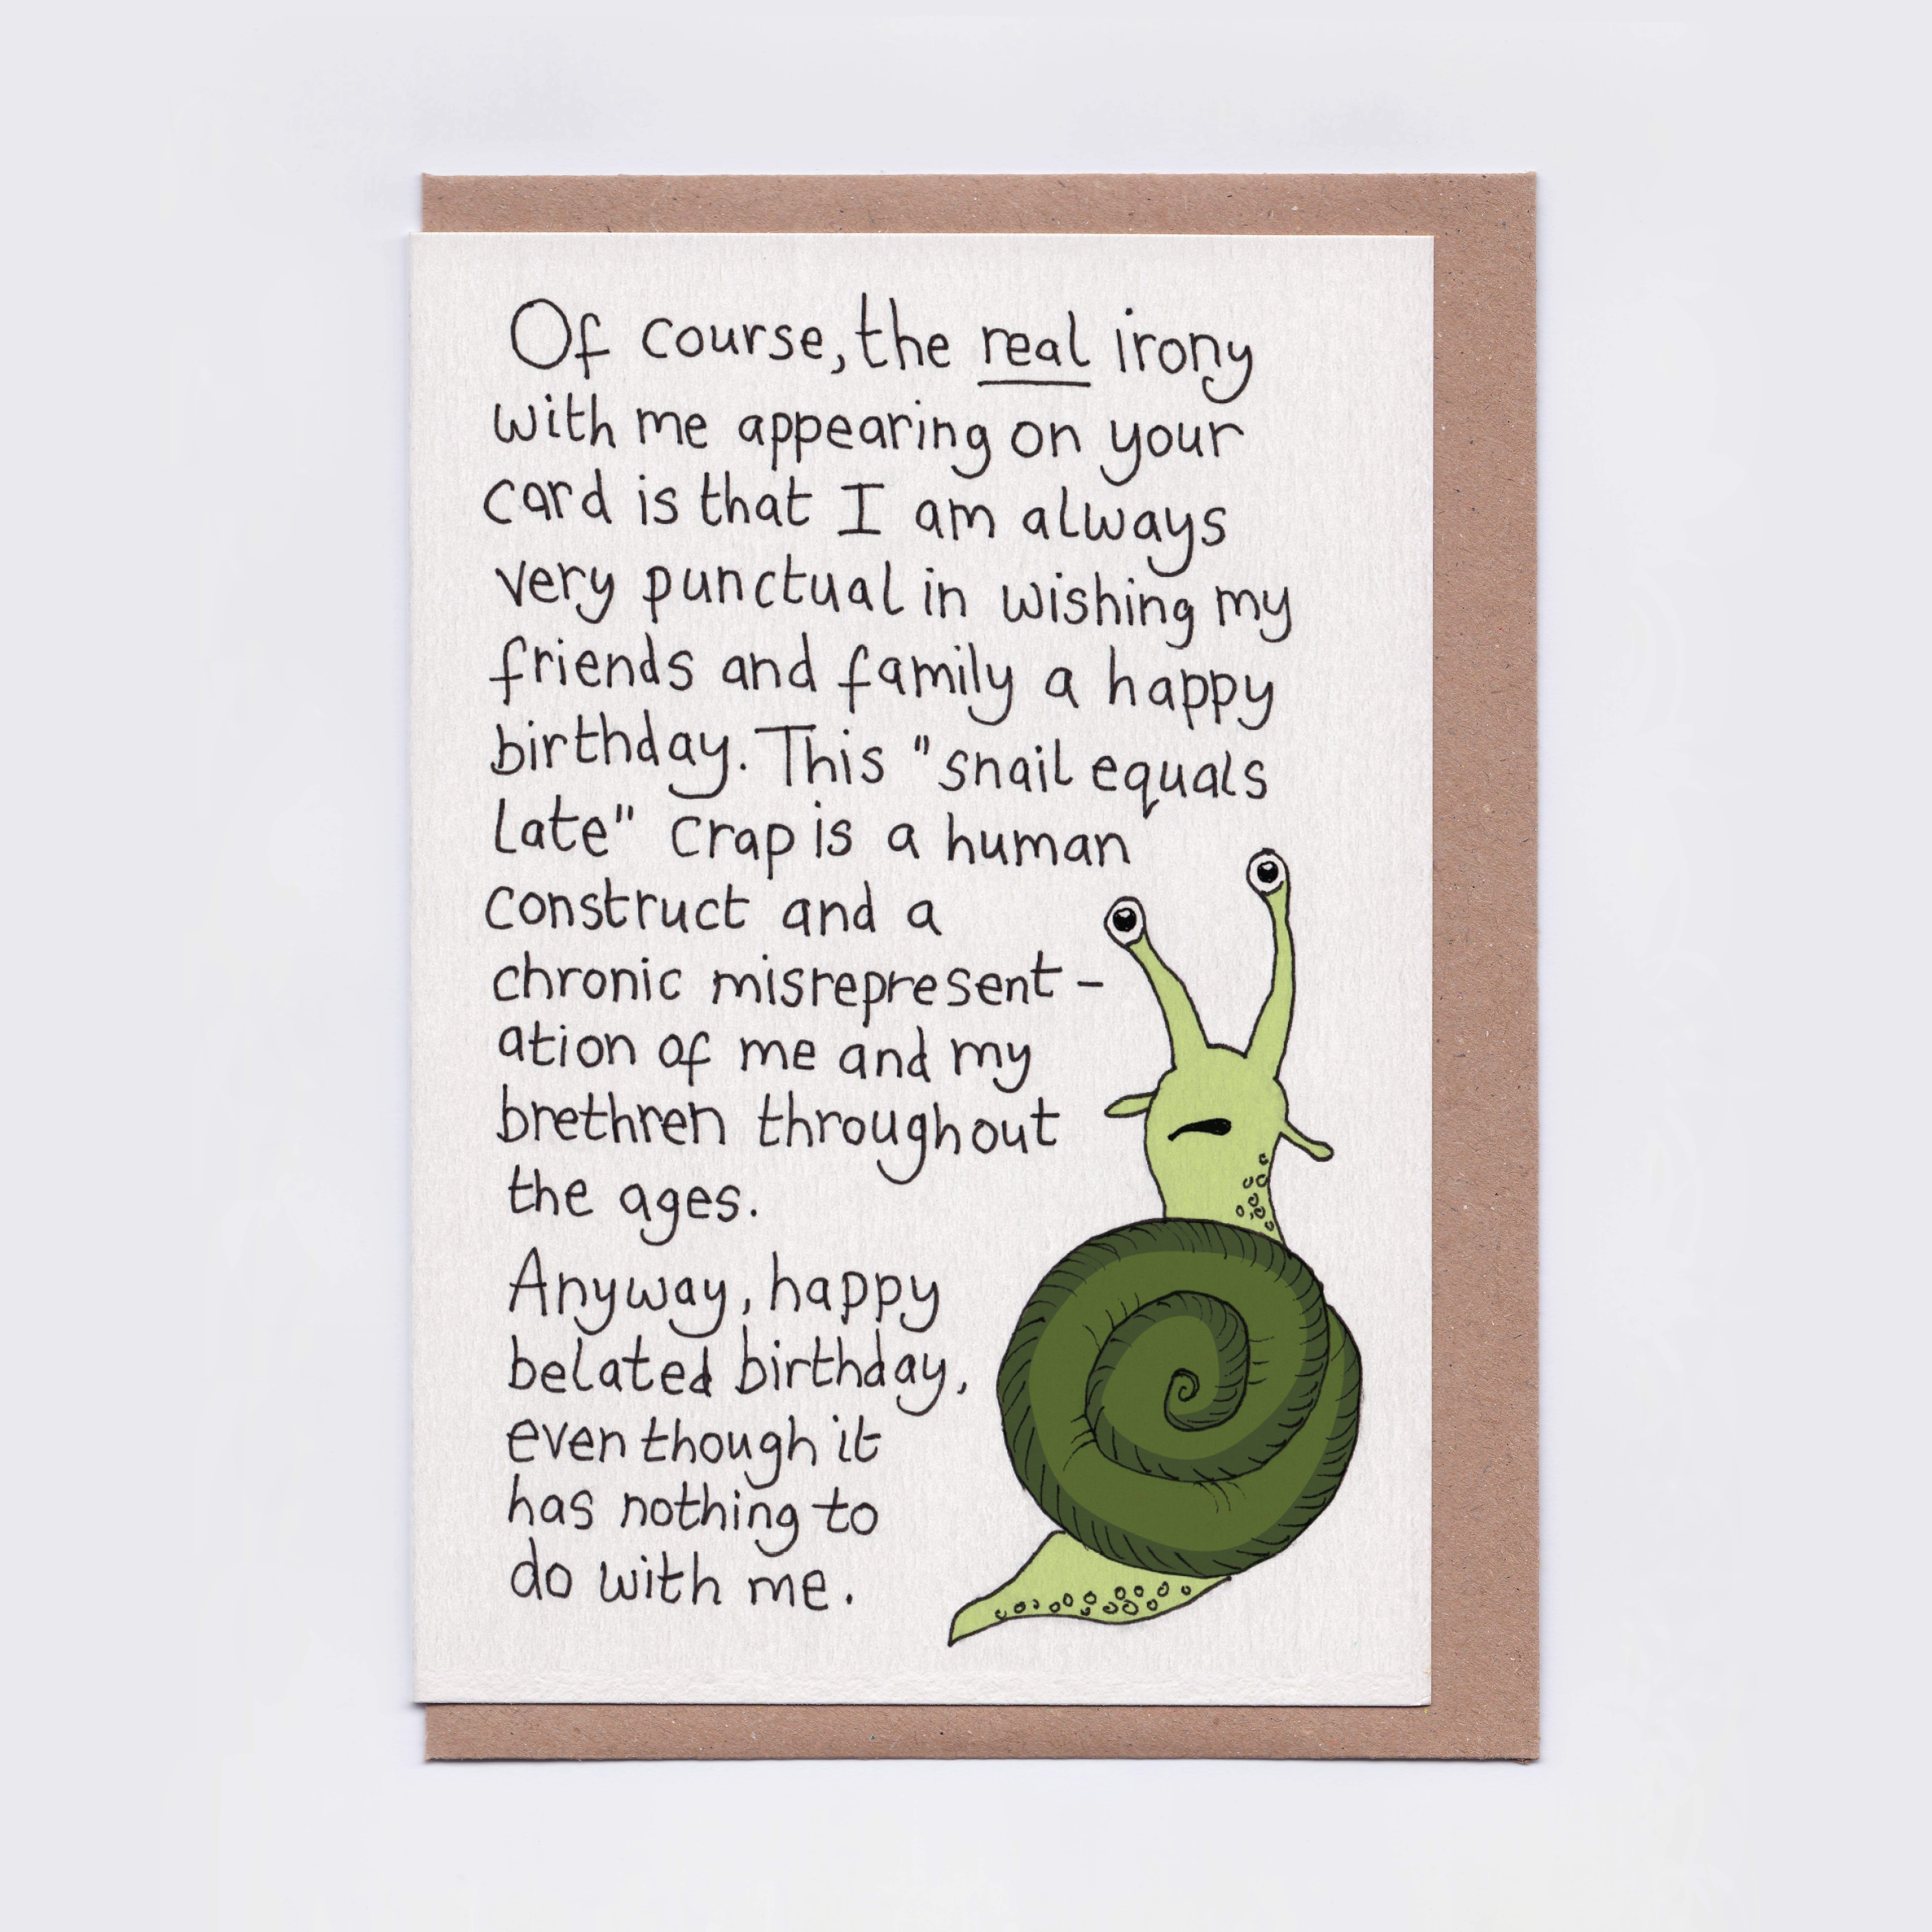 Of course, the real irony
with me appearing on your
card is that I am always
very punctual in wishing my
friends and family a happy
birthday. This "snail equals
late" crap is a human
construct and a
chronic misrepresent-
ation of me and my
brethren throughout
the ages.
Anyway, happy
belated birthday,
even though it
has nothing to
do with me.